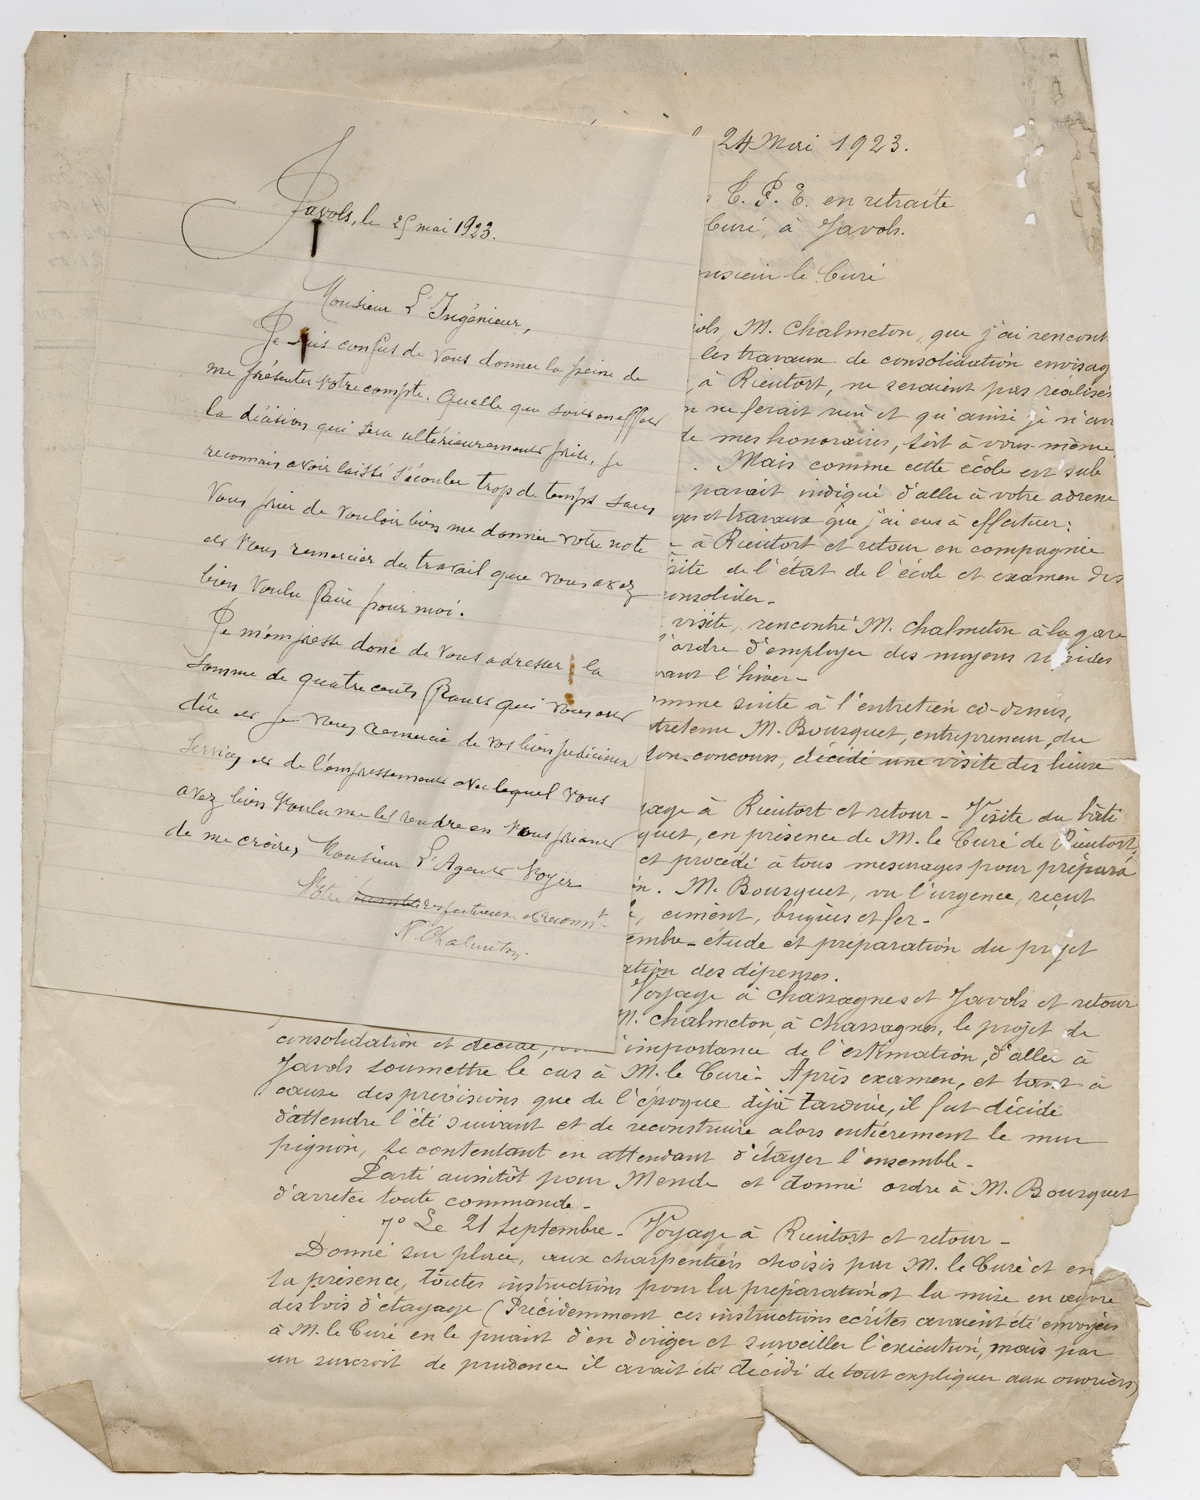 Javols, le 25 mai 1923.
Monsieur L'Ingénieur,
Je suis confus de vous donner la peine de
me présenter votre compte. Quelle que soit en effet
la décision qui sera ultérieurement prise, je
reconnais avoir laissé s'écouler trop de temps sans
vous prier de vouloir bien me donner votre note
et vous remercier du travail que vous avez
bien voulu faire pour moi.
Je m'empresse donc de vous adresser la
somme de quatre cents francs qui vous est
dûe et je vous remercie de vos bien judicieux
services et de l'empressement avec lequel vous
avez bien voulu me les rendre en vous priant
de me croire, Monsieur L'Agent Voyer
Votre respectueux et reconnt.
Chalmeton.
24 Mai 1923.
T. P. E. en retraite
Curé, à Javols.
nsieur le Curé
ols M. Chalmeton, que j'ai rencont
les travaux de consolidation envisag
à Rieutort, ne seraient pas realisés
n ne ferait rien et qu'ainsi je n'au
de mes honoraires, soit à vous même
. Mais comme cette école est sub
parait indiqué d'aller à votre adresse
ges et travaux que j'ai eus à effectuer:
à Rieutort et retour en compagnie
site de l'état de l'école et examen des
onsolider.-
visite, rencontré M. Chalmeton à la gare
l'ordre d'employer des moyens rapides
vant l'hiver-
omme suite à l'entretien ci-dessus,
tretenu M. Bousquet, entrepreneur, du
son concours, décidé une visite des lieux
yage à Rieutort et retour- Visite du bâti
quet, en présence de M. le Curé de Rieutort,
et procédé à tous mesurages pour prépara
n. M. Bousquet, vu l'urgence, reçut
, ciment, briques et fer-
embre- étude et préparation du projet
ation des dépenses.
Voyage à Chassagnes et Javols et retour
M. Chalmeton, à Chassagnes, le projet de
consolidation et décidé, l'importance de l'estimation, d'aller à
Javols soumettre le cas à M. le Curé- Après examen, et tant à
cause des prévisions que de l'époque déjà tardive, il fut décidé
d'attendre l'été suivant et de reconstruire alors entièrement le mur
pignon, se contentant en attendant d'étayer l'ensemble-
Parti aussitôt pour Mende et donné ordre à M. Bousquet
d'arrêter toute commande-
7º Le 21 Septembre- Voyage à Rieutort et retour-
Donné sur place, aux charpentiers choisis par M. le Curé et en
sa présence, toutes instructions pour la préparation et la mise en œuvre
des bois d'étayage (Précédemment ces instructions écrites avaient été envoyées
à M. le Curé en le priant d'en diriger et surveiller l'exécution, mais par
un surcroit de prudence il avait été décidé de tout expliquer aux ouvriers)